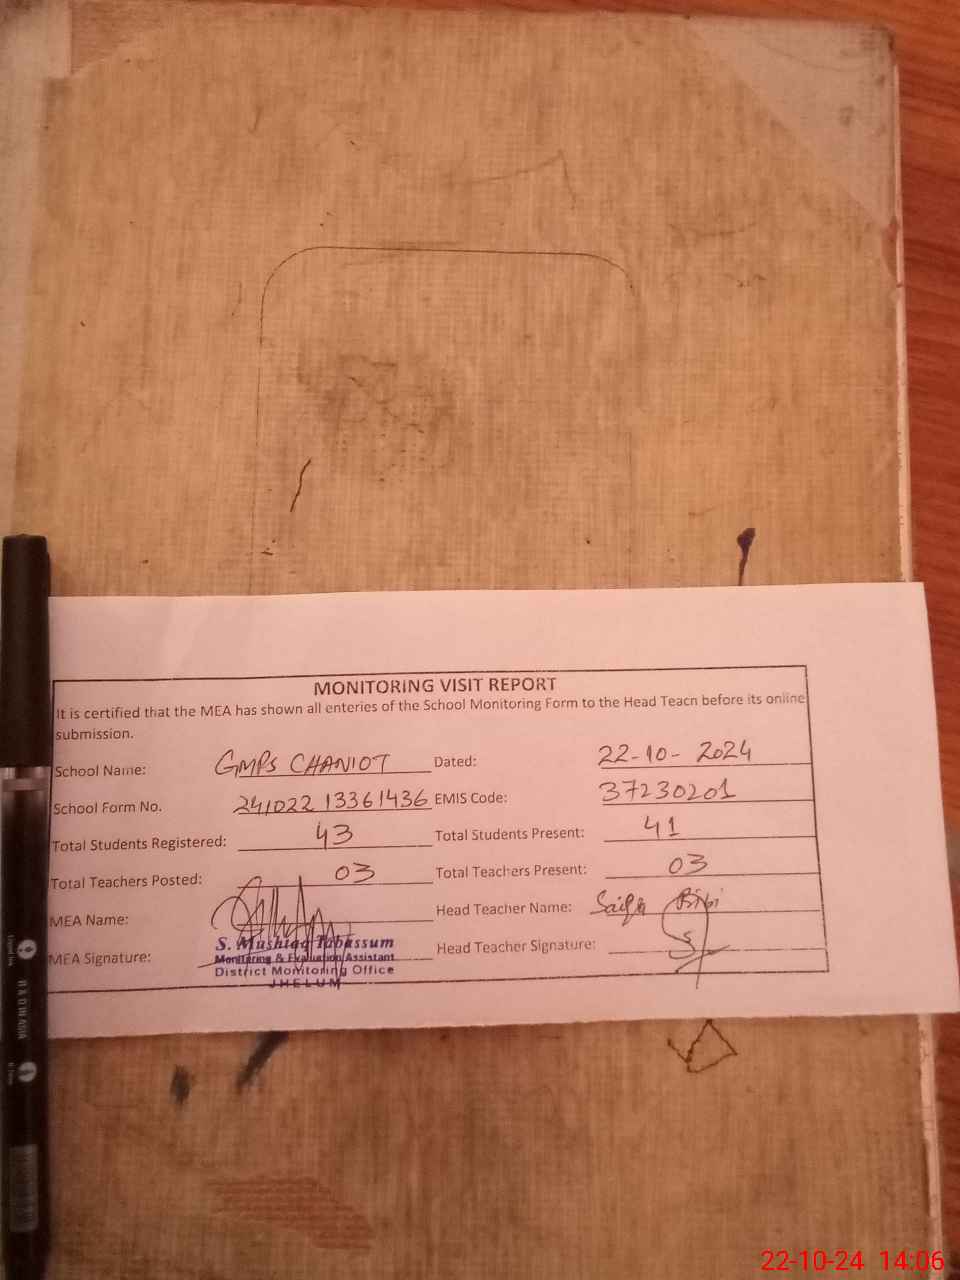 MONITORING VISIT REPORT
It is certified that the MEA has shown all enteries of the School Monitoring Form to the Head Teacn before its online
submission.
School Name: GMPS CHANIOT Dated: 22-10-2024
School Form No. 241022 13361436 EMIS Code: 37230201
Total Students Registered: 43 Total Students Present: 41
Total Teachers Posted: 03 Total Teachers Present: 03
MEA Name: Head Teacher Name: Bibi
S. Mushtaq Tabassum
MEA Signature: Monitoring & Evaluation Assistant Head Teacher Signature:
District Monitoring Office
JHELUM
22-10-24 14:06